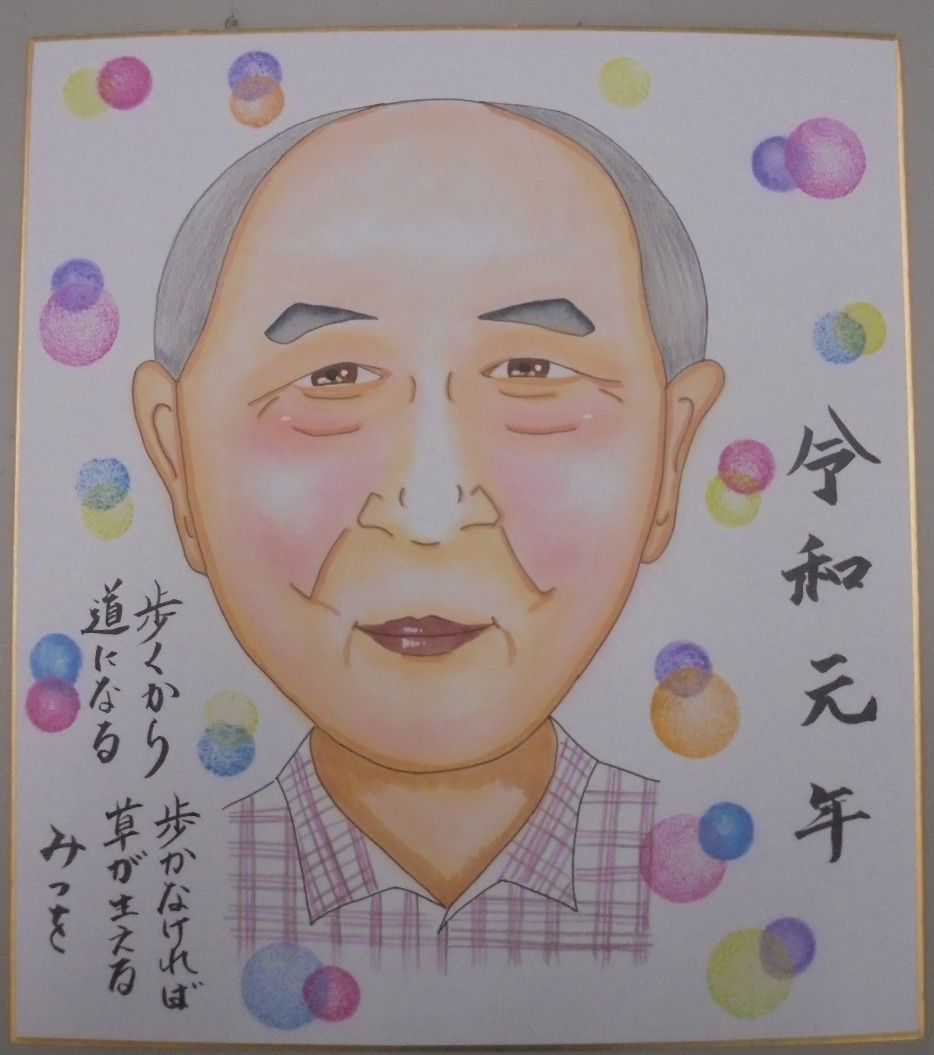 令和元年
歩くから
道になる
歩かなければ
草が生える
みつを